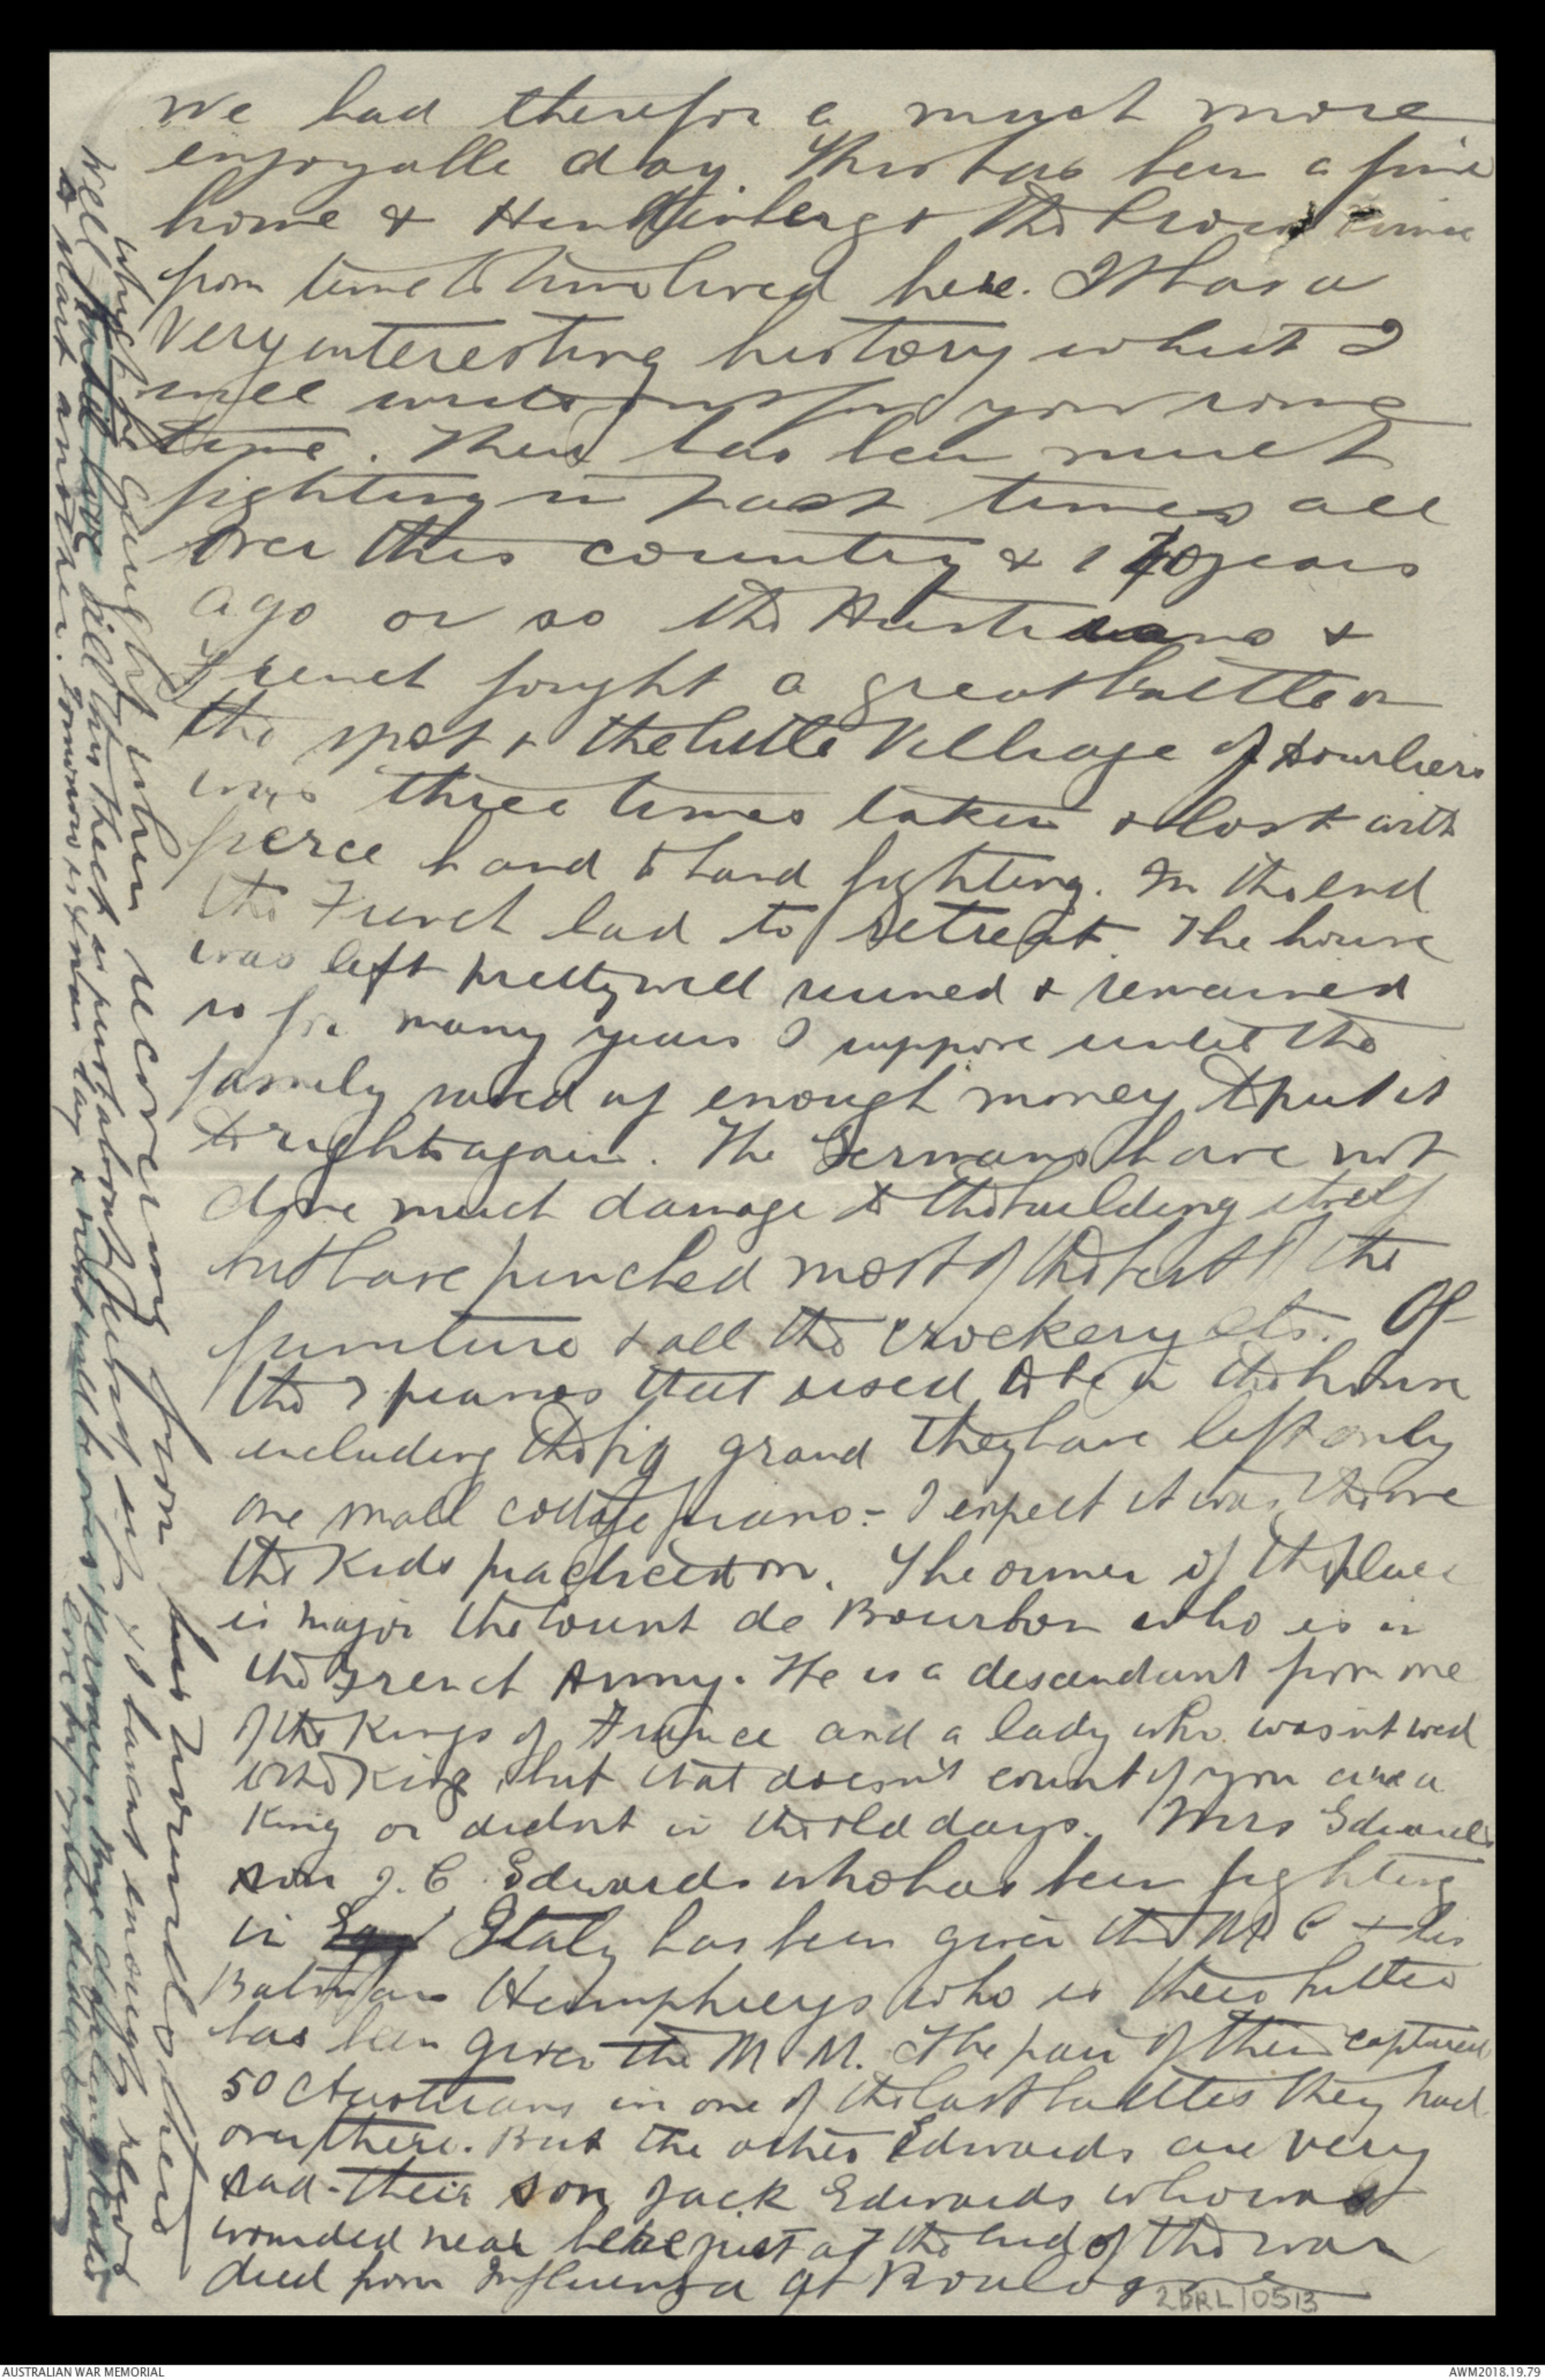 We had therefor a much more
enjoyable day. This has been a fine
home & Hindenberg & the Crown Prince
from time to time lived here. It has a
very interesting history what I
will write for you some
time. There has been much
fighting in past times all
over this country & 170 years
ago or so the Austrians &
French fought a great battle on
the spot & the little village of Dourliers
was three times taken & lost with
fierce hand to hand fighting. In the end
the French had to retreat. The house
was left pretty well ruined & remained
so for many years I suppose until the
family saved up enough money to put it
to rights again. The Germans have not
done much damage to the building itself
but have pinched most of the best of the
furniture & all the crockery etc. Of
the 7 pianos that used to be in the house
including the big grand they have left only
one small cottage piano - I expect it was the one
the kids practiced on. The owner of the place
is Major the Count de Bourbon who is in
the French Army. He is a descendant from one
of the Kings of France and a lady who wasn't wed
to the King, but that doesn't count if you are a
King or didnt in the old days. Mrs Edwards
son J. C. Edwards who has been fighting
in Italy has been given the M C & his
Batman Humphreys who is their butler
has been given the M. M. The pair of them captured
50 Austrians in one of the last battles they had
over there. But the other Edwards are very
sad - their son Jack Edwards who was
wounded near here just at the end of the war
died from Influenza at Boulogne
which he caught when recovering from his wounds
Well dear Bill this sheet is just about petered out & I havent enough
to start another. Tomorrow is Xmas day
love my dear
2DRL/0513
AUSTRALIAN WAR MEMORIAL
AWM2018.19.79